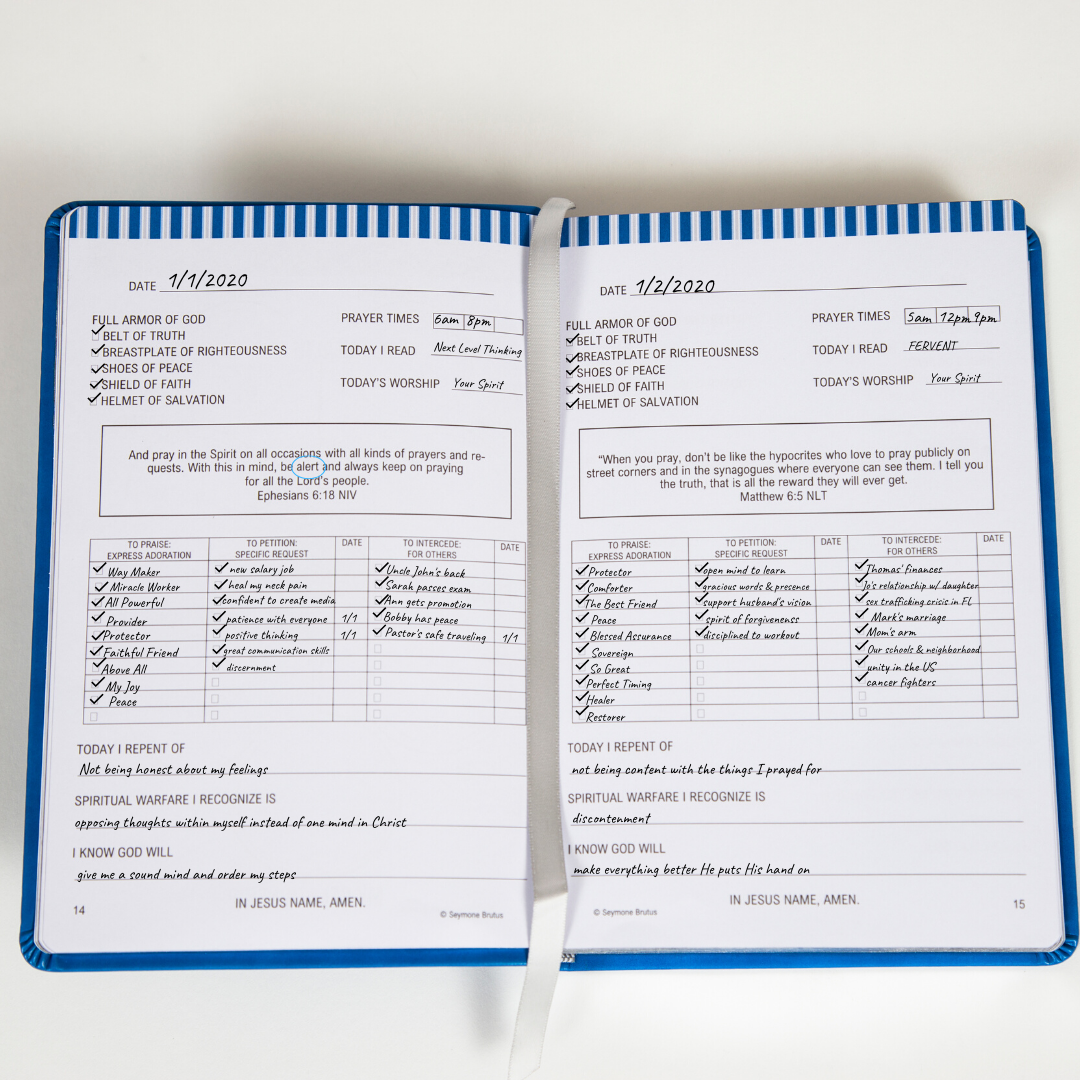 DATE 1/1/2020
FULL ARMOR OF GOD
BELT OF TRUTH
BREASTPLATE OF RIGHTEOUSNESS
SHOES OF PEACE
SHIELD OF FAITH
HELMET OF SALVATION
PRAYER TIMES 6am 8pm
TODAY I READ Next Level Thinking
TODAY'S WORSHIP Your Spirit
And pray in the Spirit on all occasions with all kinds of prayers and re-
quests. With this in mind, be alert and always keep on praying
for all the Lord's people.
Ephesians 6:18 NIV
TO PRAISE:
EXPRESS ADORATION
Way Maker
Miracle Worker
All Powerful
Provider
Protector
Faithful Friend
Above All
My Joy
Peace
TO PETITION:
SPECIFIC REQUEST
DATE
new salary job
heal my neck pain
confident to create media
patience with everyone 1/1
positive thinking 1/1
great communication skills
discernment
TO INTERCEDE:
FOR OTHERS
DATE
Uncle John's back
Sarah passes exam
Ann gets promotion
Bobby has peace
Pastor's safe traveling 1/1
TODAY I REPENT OF
Not being honest about my feelings
SPIRITUAL WARFARE I RECOGNIZE IS
opposing thoughts within myself instead of one mind in Christ
I KNOW GOD WILL
give me a sound mind and order my steps
IN JESUS NAME, AMEN.
14
© Seymone Brutus
DATE 1/2/2020
FULL ARMOR OF GOD
BELT OF TRUTH
BREASTPLATE OF RIGHTEOUSNESS
SHOES OF PEACE
SHIELD OF FAITH
HELMET OF SALVATION
PRAYER TIMES 5am 12pm 9pm
TODAY I READ FERVENT
TODAY'S WORSHIP Your Spirit
"When you pray, don't be like the hypocrites who love to pray publicly on
street corners and in the synagogues where everyone can see them. I tell you
the truth, that is all the reward they will ever get.
Matthew 6:5 NLT
TO PRAISE:
EXPRESS ADORATION
Protector
Comforter
The Best Friend
Peace
Blessed Assurance
Sovereign
So Great
Perfect Timing
Healer
Restorer
TO PETITION:
SPECIFIC REQUEST
DATE
open mind to learn
gracious words & presence
support husband's vision
spirit of forgivenenss
disciplined to workout
TO INTERCEDE:
FOR OTHERS
DATE
Thomas' finances
Jo's relationship w/ daughter
sex trafficking crisis in FL
Mark's marriage
Mom's arm
Our schools & neighborhood
unity in the US
cancer fighters
TODAY I REPENT OF
not being content with the things I prayed for
SPIRITUAL WARFARE I RECOGNIZE IS
discontenment
I KNOW GOD WILL
make everything better He puts His hand on
IN JESUS NAME, AMEN.
© Seymone Brutus
15